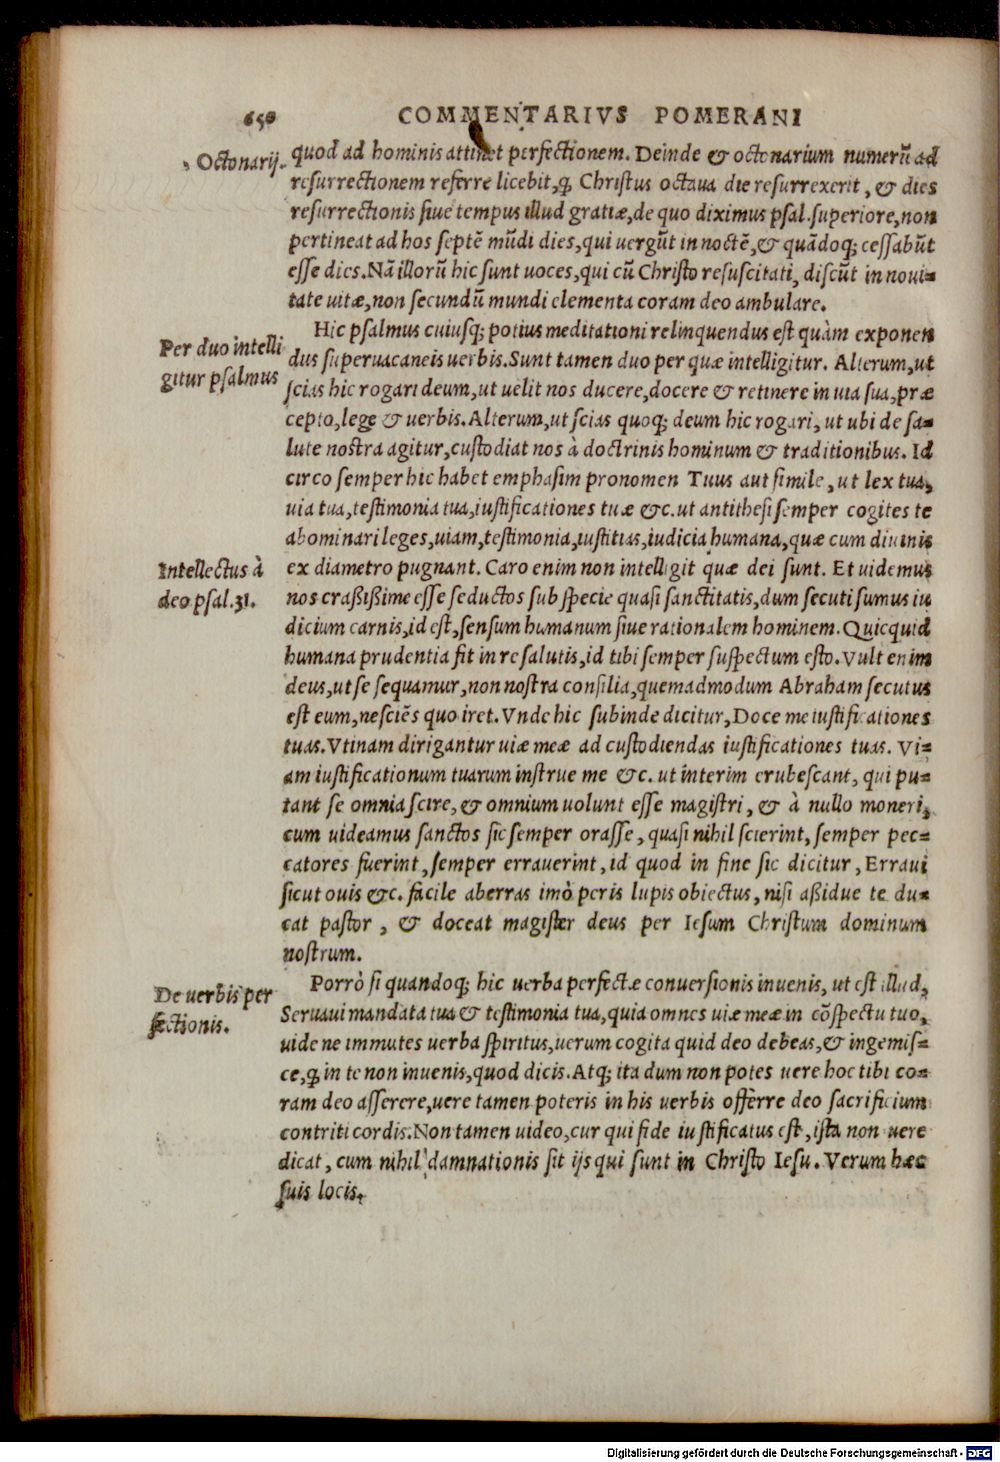 650 COMMENTARIVS POMERANI
Octonarij.
quod ad hominis attinet perfectionem. Deinde & octonarium numerũ ad
resurrectionem referre licebit, ꝙ Christus octaua die resurrexerit, & dies
resurrectionis siue tempus illud gratiæ, de quo diximus psal. superiore, non
pertineat ad hos septẽ mũdi dies, qui uergũt in noctẽ, & quãdoq; cessabũt
esse dies. Nã illorũ hic sunt uoces, qui cũ Christo resuscitati, discũt in noui-
tate uitæ, non secundũ mundi elementa coram deo ambulare.
Per duo intelli
gitur psalmus
Hic psalmus cuiusq; potius meditationi relinquendus est quàm exponen
dus superuacaneis uerbis. Sunt tamen duo per quæ intelligitur. Alterum, ut
scias hic rogari deum, ut uelit nos ducere, docere & retinere in uia sua, præ
cepto, lege & uerbis. Alterum, ut scias quoq; deum hic rogari, ut ubi de sa-
lute nostra agitur, custodiat nos à doctrinis hominum & traditionibus. Id
circo semper hic habet emphasim pronomen Tuus aut simile, ut lex tua,
uia tua, testimonia tua, iustificationes tuæ &c. ut antithesi semper cogites te
abominari leges, uiam, testimonia, iustitias, iudicia humana, quæ cum diuinis
Intellectus à
deo psal. 31.
ex diametro pugnant. Caro enim non intelligit quæ dei sunt. Et uidemus
nos craßißime esse seductos sub specie quasi sanctitatis, dum secuti sumus iu
dicium carnis, id est, sensum humanum siue rationalem hominem. Quicquid
humana prudentia fit in re salutis, id tibi semper suspectum esto. Vult enim
deus, ut se sequamur, non nostra consilia, quemadmodum Abraham secutus
est eum, nesciẽs quo iret. Vnde hic subinde dicitur, Doce me iustificationes
tuas. Vtinam dirigantur uiæ meæ ad custodiendas iustificationes tuas. Vi-
am iustificationum tuarum instrue me &c. ut interim erubescant, qui pu-
tant se omnia scire, & omnium uolunt esse magistri, & à nullo moneri,
cum uideamus sanctos sic semper orasse, quasi nihil scierint, semper pec-
catores fuerint, semper errauerint, id quod in fine sic dicitur, Erraui
sicut ouis &c. facile aberras imò peris lupis obiectus, nisi aßidue te du-
cat pastor, & doceat magister deus per Iesum Christum dominum
nostrum.
De uerbis per
fectionis.
Porrò si quandoq; hic uerba perfectæ conuersionis inuenis, ut est illud,
Seruaui mandata tua & testimonia tua, quia omnes uiæ meæ in cõspectu tuo,
uide ne immutes uerba spiritus, uerum cogita quid deo debeas, & ingemis-
ce, ꝙ in te non inuenis, quod dicis. Atq; ita dum non potes uere hoc tibi co-
ram deo asserere, uere tamen poteris in his uerbis offerre deo sacrificium
contriti cordis. Non tamen uideo, cur qui fide iustificatus est, ista non uere
dicat, cum nihil damnationis sit ijs qui sunt in Christo Iesu. Verum hæc
suis locis.
Digitalisierung gefördert durch die Deutsche Forschungsgemeinschaft - DFG